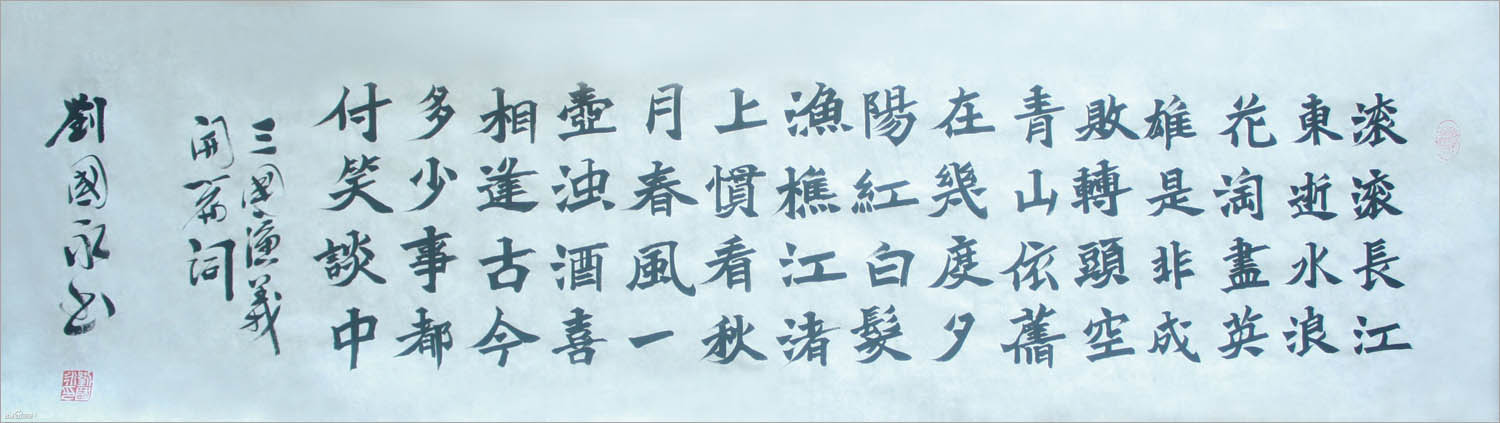 滚滚長江
東逝水浪
花淘盡英
雄是非成
敗轉頭空
青山依舊
在幾度夕
陽紅白髮
漁樵江渚
上慣看秋
月春風一
壺浊酒喜
相逢古今
多少事都
付笑談中
三國演義
開篇词
劉國永书